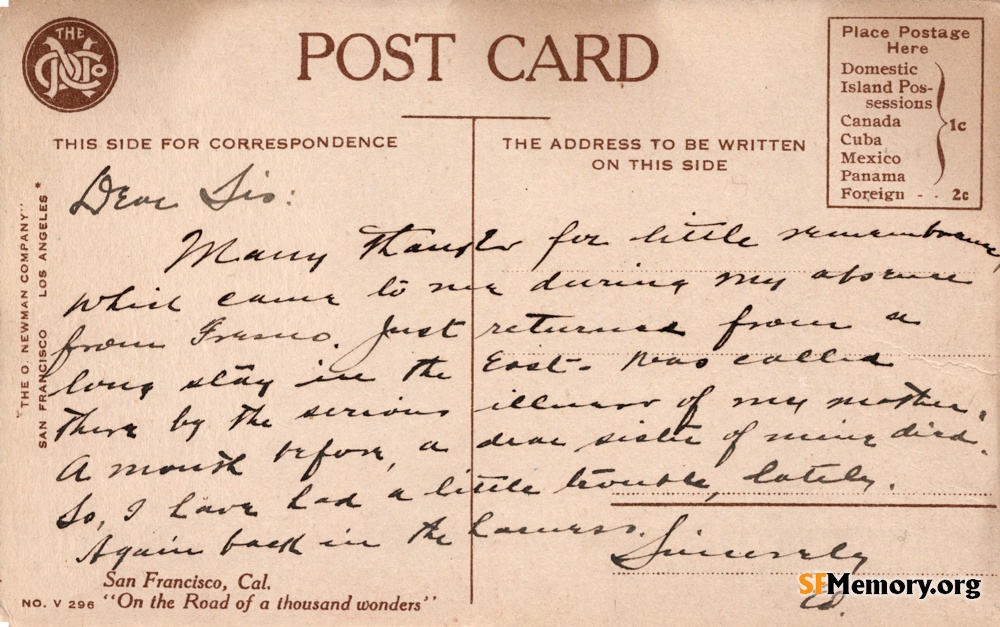 THE
NCo
POST CARD
Place Postage
Here
Domestic
Island Pos-
sessions
Canada
Cuba
Mexico
Panama
1c
Foreign - - 2c
THIS SIDE FOR CORRESPONDENCE
THE ADDRESS TO BE WRITTEN
ON THIS SIDE
"THE O. NEWMAN COMPANY"
SAN FRANCISCO LOS ANGELES"
Dear Sis:
Many thanks for little remembrance
which came to me during my absence
from Fresno. Just returned from a
long stay in the East. Was called
there by the serious illness of my mother.
A month before, a dear sister of mine died.
So, I have had a little trouble, lately.
Again back in the harness.
Sincerely
Ed.
San Francisco, Cal.
NO. V 296 "On the Road of a thousand wonders"
SFMemory.org